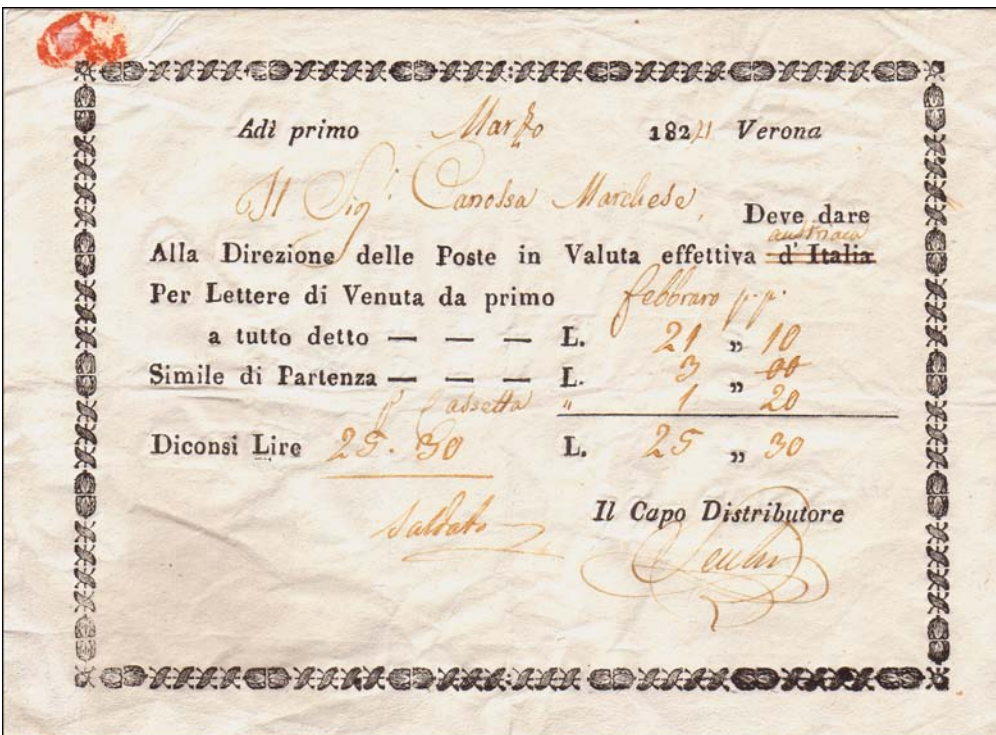 Adì primo Marzo 1824 Verona
Il Sig.r Canossa Marchese, Deve dare
austriaca
Alla Direzione delle Poste in Valuta effettiva d' Italia
Per Lettere di Venuta da primo febbraro p.p.
a tutto detto — — — L. 21 „ 10
Simile di Partenza — — — L. 3 „ 00
p Cassetta „ 1 „ 20
Diconsi Lire 25.30 L. 25 „ 30
saldato
Il Capo Distributore